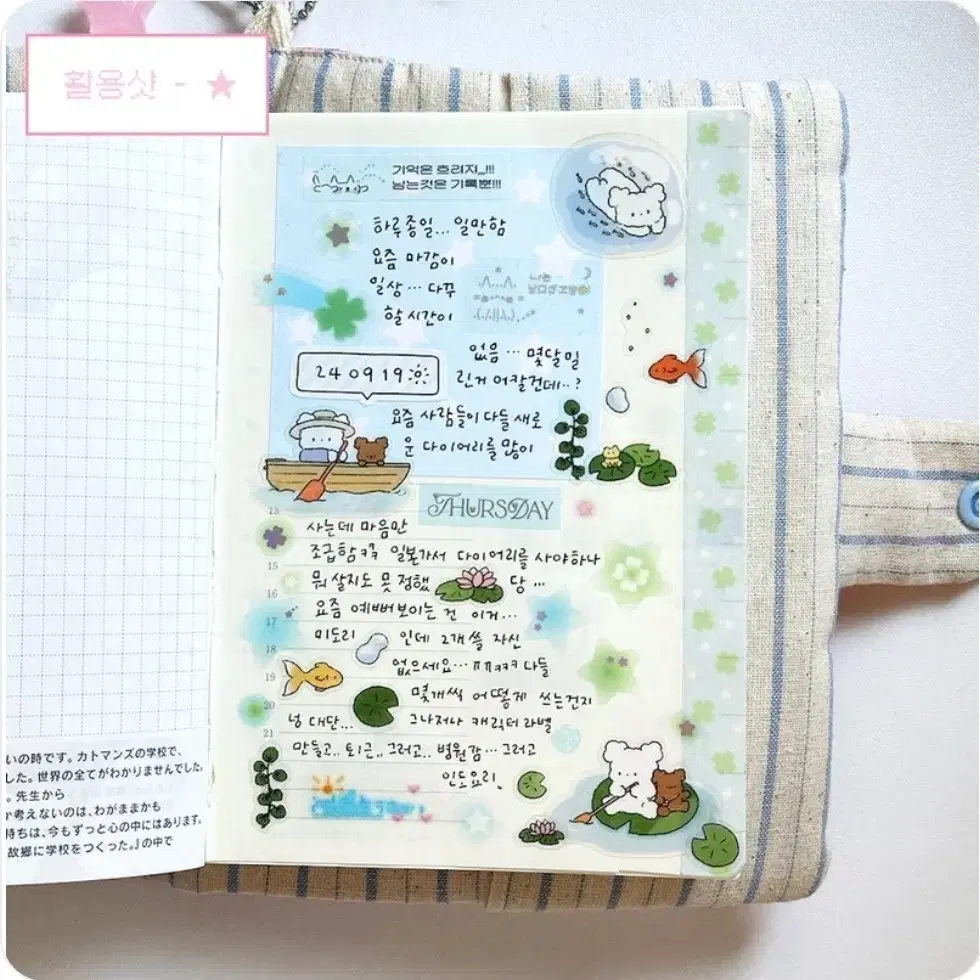 활용샷 - ★
기억은 흐리지,,,!!!
남는것은 기록뿐!!!
하루종일... 일만함
요즘 마감이
일상... 다꾸
할 시간이
없음... 몇달밀
린거 어칼건데..?
240919
요즘 사람들이 다들 새로
운 다이어리를 많이
THURSDAY
13
사는데 마음만
조급함ㅋㅋ 일본가서 다이어리를 사야하나
15
뭐 살지도 못 정했 당...
16
요즘 예뻐보이는 건 이거...
17
미도리 인데 2개 쓸 자신
18
없으세요... ㅠㅠㅋㅋㅋ 다들
19
몇개씩 어떻게 쓰는건지
20
넝 대단... 그나저나 캐릭터 라벨
21
만들고.. 퇴근,, 그러고.. 병원감... 그러고
인도요리,,
いの時です。カトマンズの学校で、
した。世界の全てがわかりませんでした。
。先生から
考えないのは、わがままかも
持ちは、今もずっと心の中にはあります。
故郷に学校をつくった。』の中で